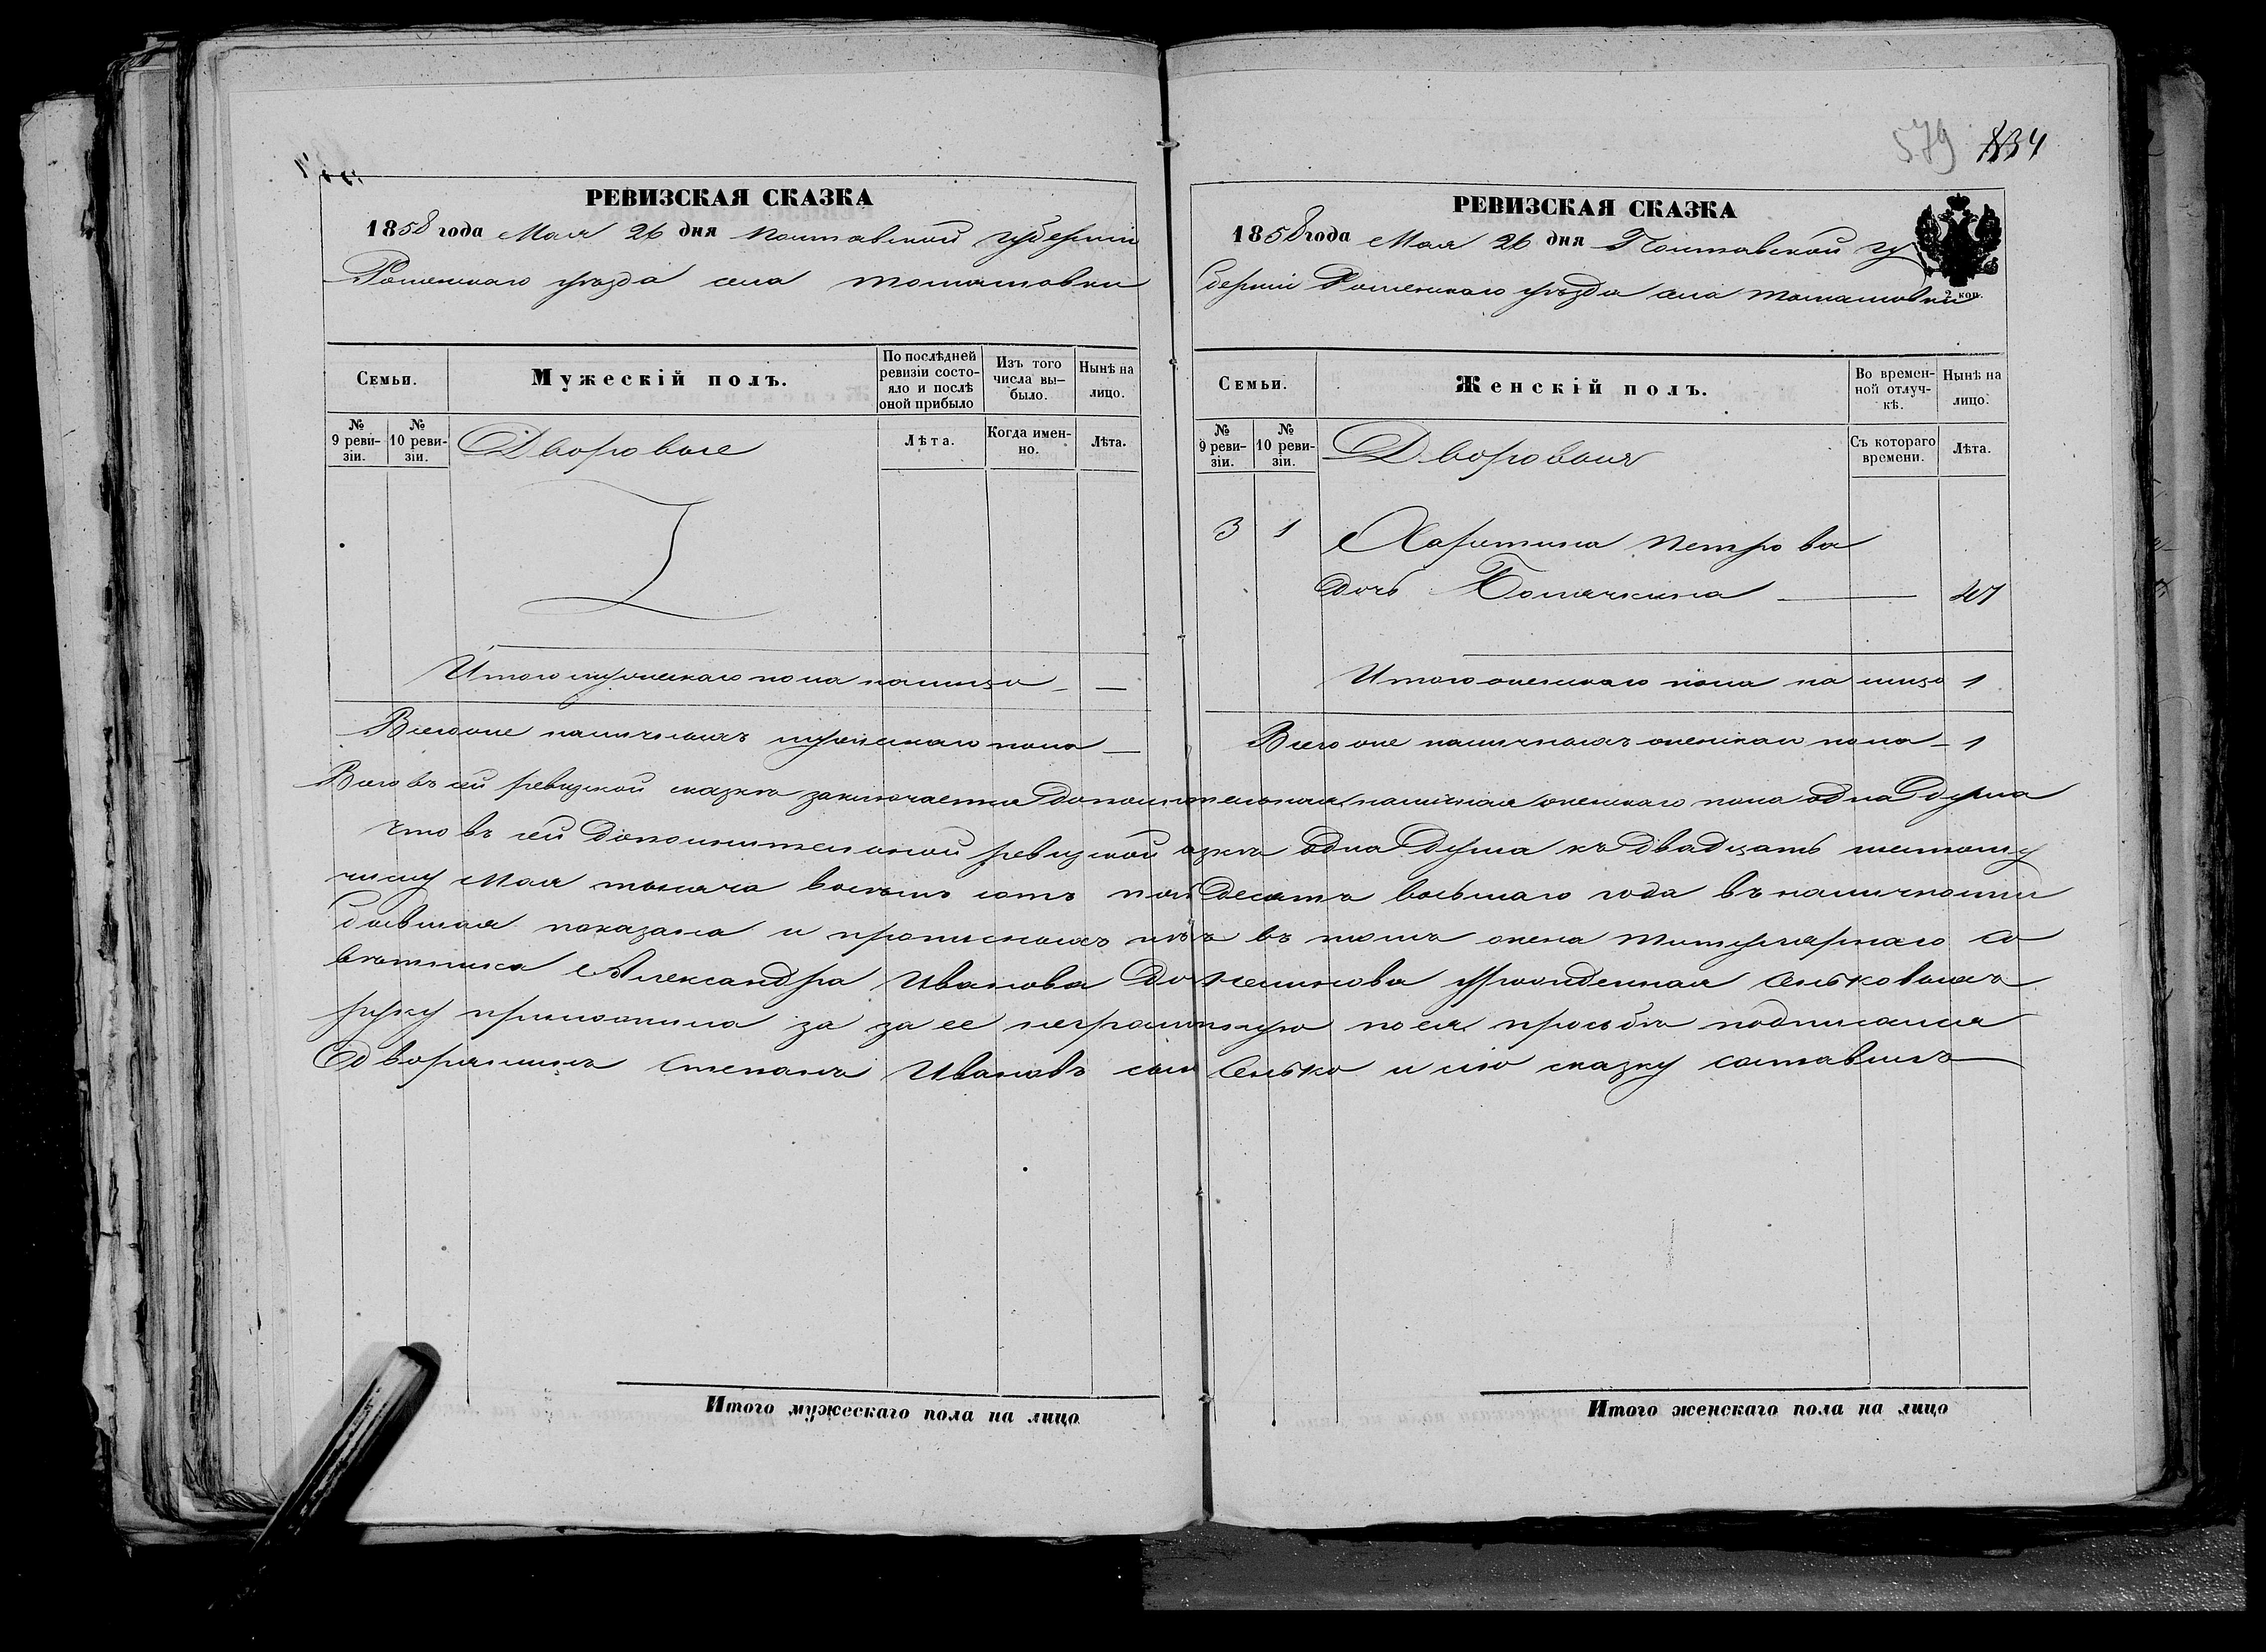 579 134
РЕВИЗСКАЯ СКАЗКА
1858 года Мая 26 дня Полтавской губерніи
Роменскаго уѣзда села Томашовки
Семьи.
Мужескій полъ.
По послѣдней ревизіи состояло и послѣ оной прибыло
Изъ того числа вы-было.
Нынѣ на лицо.
№ 9 реви-зіи.
№ 10 реви-зіи.
Дворовые
Лѣта.
Когда имен-но.
Лѣта.
Итого мужескаго пола налицо — —
Всего же наличныхъ мужескаго пола —
РЕВИЗСКАЯ СКАЗКА
1858 года Мая 26 дня Полтавской гу
берніи Роменскаго уѣзда села Томашовки
2 коп.
Семьи.
Женскій полъ.
Во времен-ной отлуч-кѣ.
Нынѣ на лицо.
№ 9 реви-зіи.
№ 10 реви-зіи.
Дворовыя
Съ котораго времени.
Лѣта.
3 1 Харитина Петрова
дочь — 47
Итого женскаго пола на лицо 1
Всего же наличныхъ женскаго пола — 1
Всего въ сей ревизской сказкѣ заключается дополнительная наличная женскаго пола одна душа
Что въ сей дополнительной ревизской одна душа къ двадцать шестому
числу Мая тысяча восемь сотъ пятдесятъ восьмаго года въ наличности
бывшая показана и прописныхъ нѣтъ въ томъ жена титулярнаго со
вѣтника Александра Иванова урожденная Сеньковыхъ
руку приложила за за ее неграмотную по ея просьбѣ подписался
дворянинъ Степанъ Ивановъ сынъ Сенько и сію сказку составилъ
Итого мужескаго пола на лицо
Итого женскаго пола на лицо